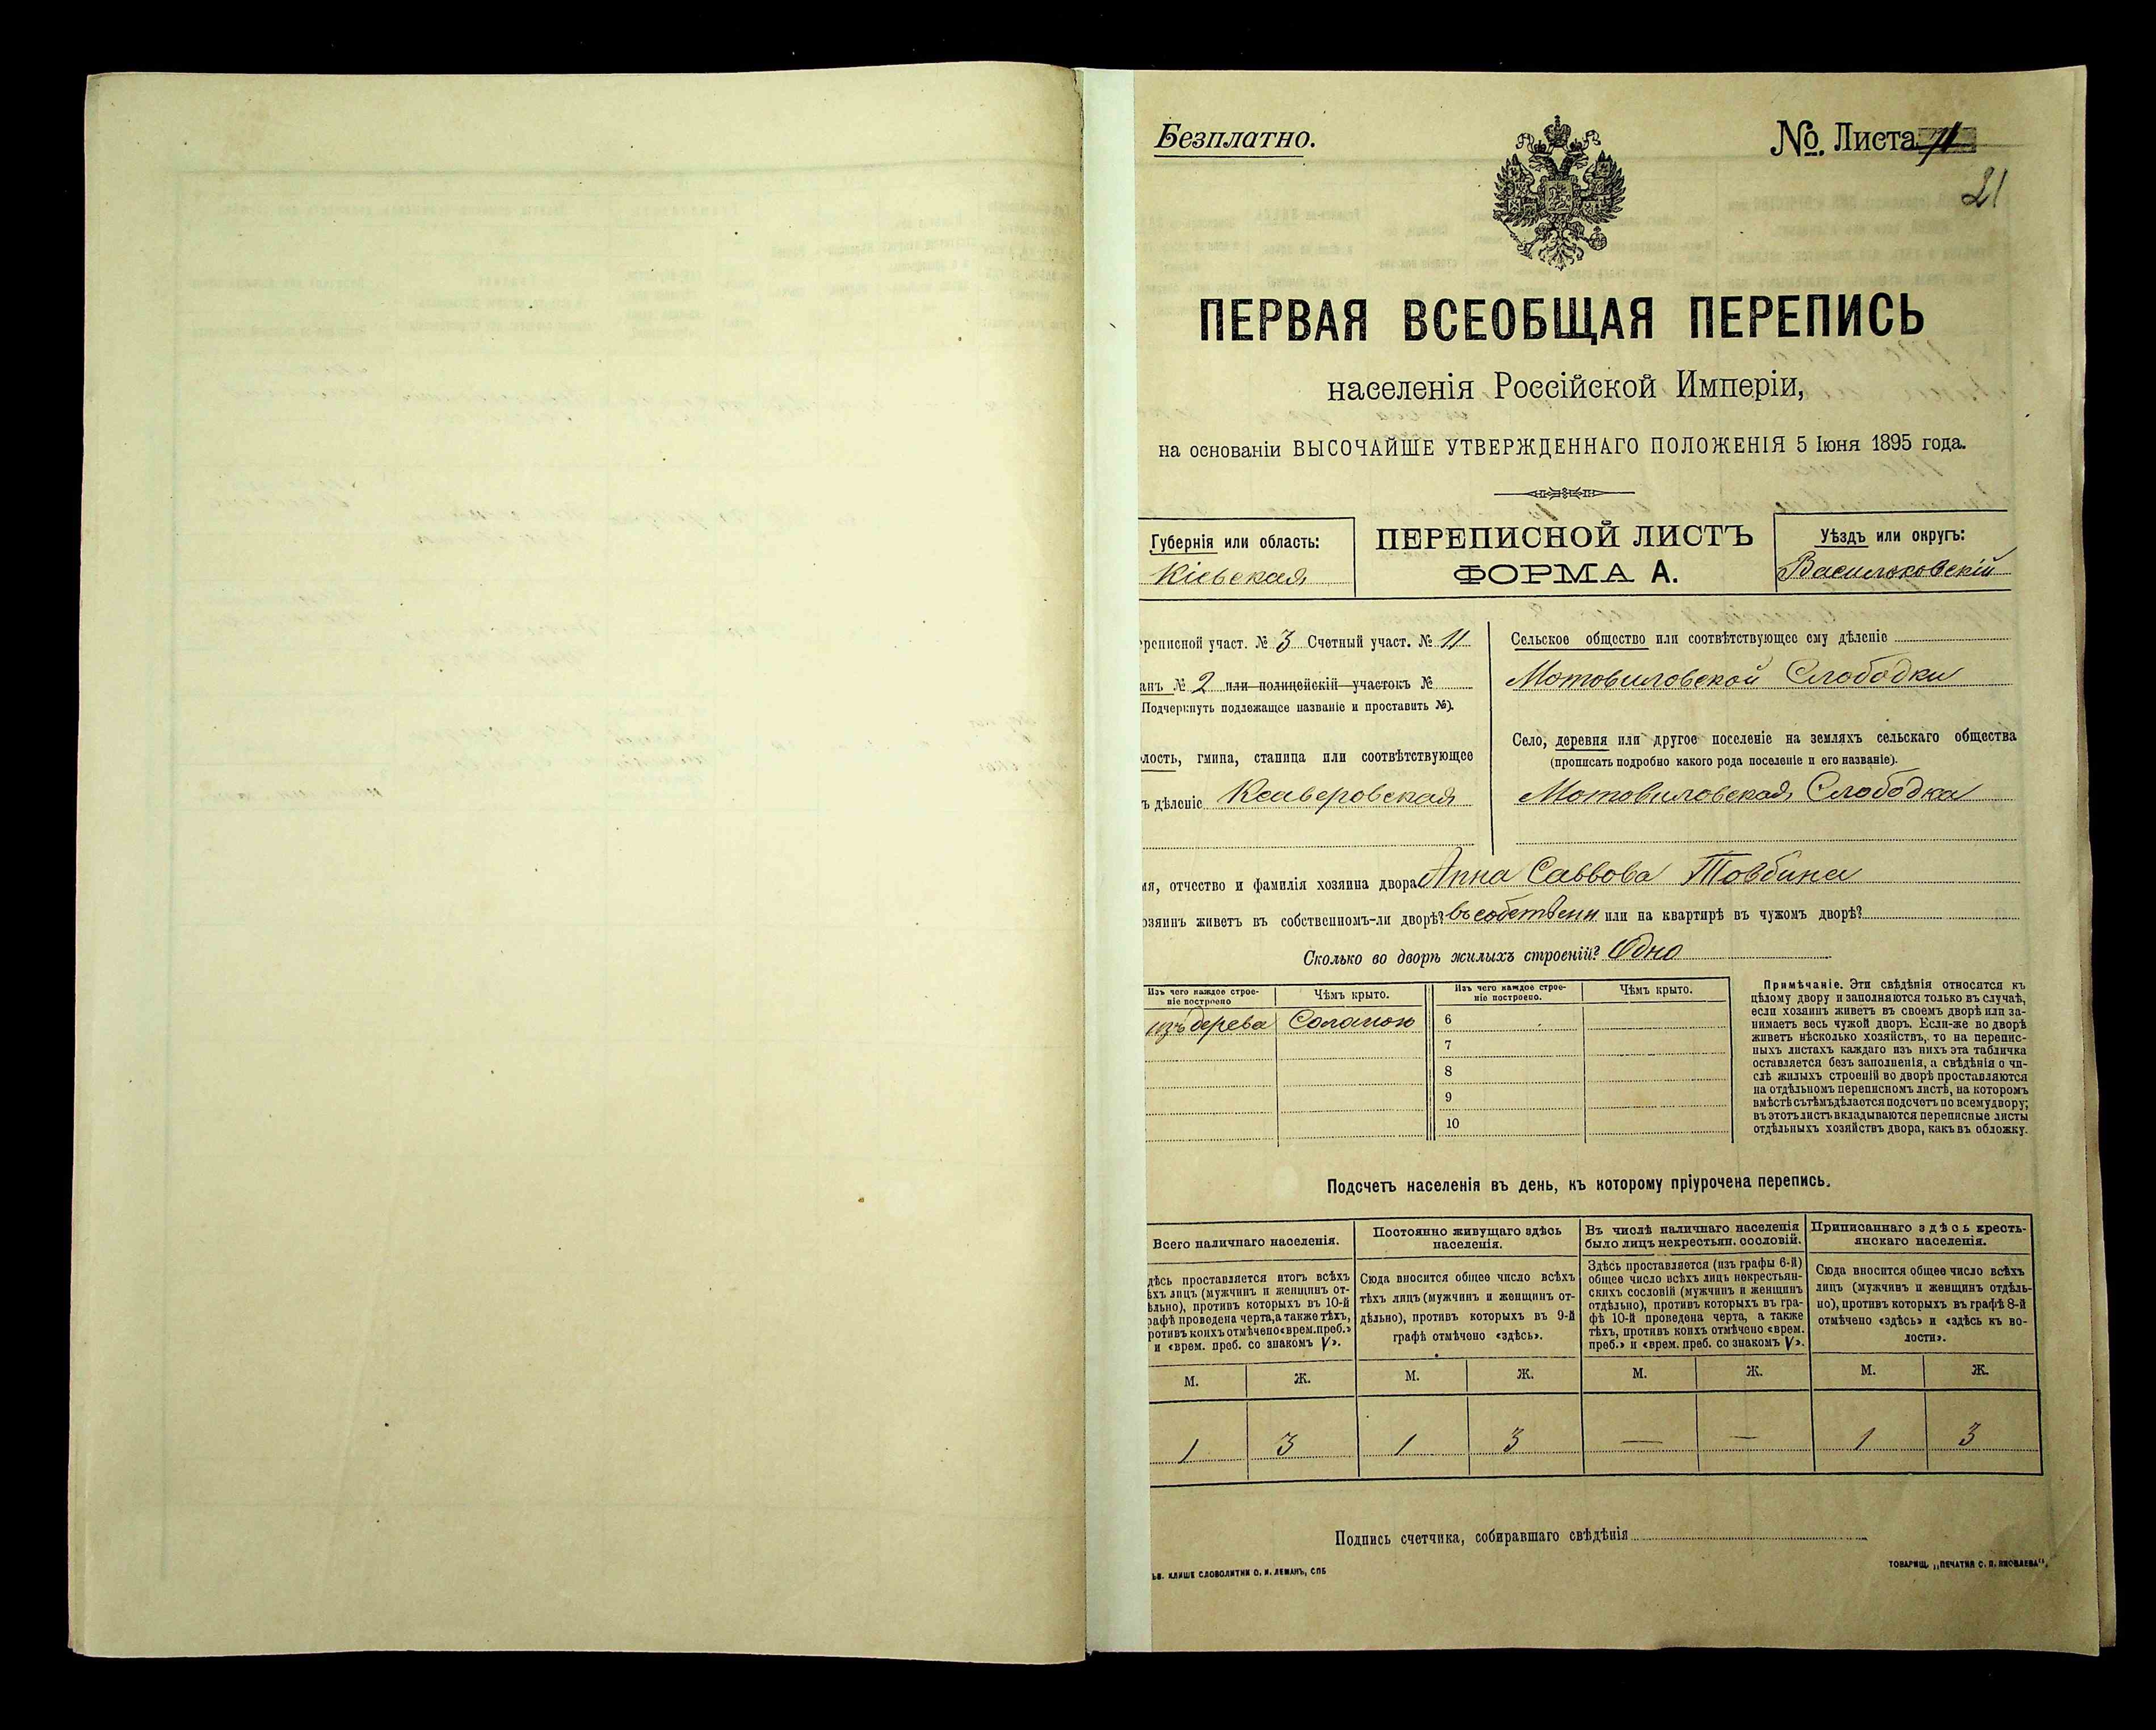 Безплатно.
№ Листа
21
ПЕРВАЯ ВСЕОБЩАЯ ПЕРЕПИСЬ
населенія Россійской Имперіи,
на основаніи ВЫСОЧАЙШЕ УТВЕРЖДЕННАГО ПОЛОЖЕНІЯ 5 Іюня 1895 года.
Губернія или область:
Кіевская
ПЕРЕПИСНОЙ ЛИСТЪ
ФОРМА А.
Уѣздъ или округъ:
Васильковскій
реписной участ. № 3 Счетный участ. № 11
анъ № 2 или полицейскій участокъ №
Подчеркнуть подлежащее названіе и проставить №).
лость, гмина, станица или соотвѣтствующее
ъ дѣленіе Ксаверовская
Сельское общество или соотвѣтствующее ему дѣленіе
Мотовиловской Слободки
Село, деревня или другое поселеніе на земляхъ сельскаго общества
(прописать подробно какого рода поселеніе и его названіе).
Мотовиловская Слободка
мя, отчество и фамилія хозяина двора Анна Саввова Товбина
озяинъ живетъ въ собственномъ-ли дворѣ? въ собственн или на квартирѣ въ чужомъ дворѣ?
Сколько во дворѣ жилыхъ строеній? Одно
Изъ чего каждое строе-
ніе построено
Чѣмъ крыто.
Изъ чего каждое строе-
ніе построено.
Чѣмъ крыто.
изъ дерева Соломою
6
7
8
9
10
Примѣчаніе. Эти свѣдѣнія относятся къ
цѣлому двору и заполняются только въ случаѣ,
если хозяинъ живетъ въ своемъ дворѣ или за-
нимаетъ весь чужой дворъ. Если-же во дворѣ
живетъ нѣсколько хозяйствъ, то на перепис-
ныхъ листахъ каждаго изъ нихъ эта табличка
оставляется безъ заполненія, а свѣдѣнія о чи-
слѣ жилыхъ строеній во дворѣ проставляются
на отдѣльномъ переписномъ листѣ, на которомъ
вмѣстѣ съ тѣмъ дѣлается подсчетъ по всему двору;
въ этотъ листъ вкладываются переписные листы
отдѣльныхъ хозяйствъ двора, какъ въ обложку.
Подсчетъ населенія въ день, къ которому пріурочена перепись.
Всего наличнаго населенія.
дѣсь проставляется итогъ всѣхъ
ѣхъ лицъ (мужчинъ и женщинъ от-
ѣльно), противъ которыхъ въ 10-й
рафѣ проведена черта, а также тѣхъ,
ротивъ коихъ отмѣчено «врем. преб.»
и «врем. преб. со знакомъ V».
Постоянно живущаго здѣсь
населенія.
Сюда вносится общее число всѣхъ
тѣхъ лицъ (мужчинъ и женщинъ от-
дѣльно), противъ которыхъ въ 9-й
графѣ отмѣчено «здѣсь».
Въ числѣ наличнаго населенія
было лицъ некрестьян. сословій.
Здѣсь проставляется (изъ графы 6-й)
общее число всѣхъ лицъ некрестьян-
скихъ сословій (мужчинъ и женщинъ
отдѣльно), противъ которыхъ въ гра-
фѣ 10-й проведена черта, а также
тѣхъ, противъ коихъ отмѣчено «врем.
преб.» и «врем. преб. со знакомъ V».
Приписаннаго здѣсь кресть-
янскаго населенія.
Сюда вносится общее число всѣхъ
лицъ (мужчинъ и женщинъ отдѣль-
но), противъ которыхъ въ графѣ 8-й
отмѣчено «здѣсь» и «здѣсь къ во-
лости».
М. Ж. М. Ж. М. Ж. М. Ж.
1 3 1 3 — — 1 3
Подпись счетчика, собиравшаго свѣдѣнія
ЬВ. КЛИШЕ СЛОВОЛИТНИ О. И. ЛЕМАНЪ, СПБ
ТОВАРИЩ. „ПЕЧАТНЯ С. П. ЯКОВЛЕВА“.